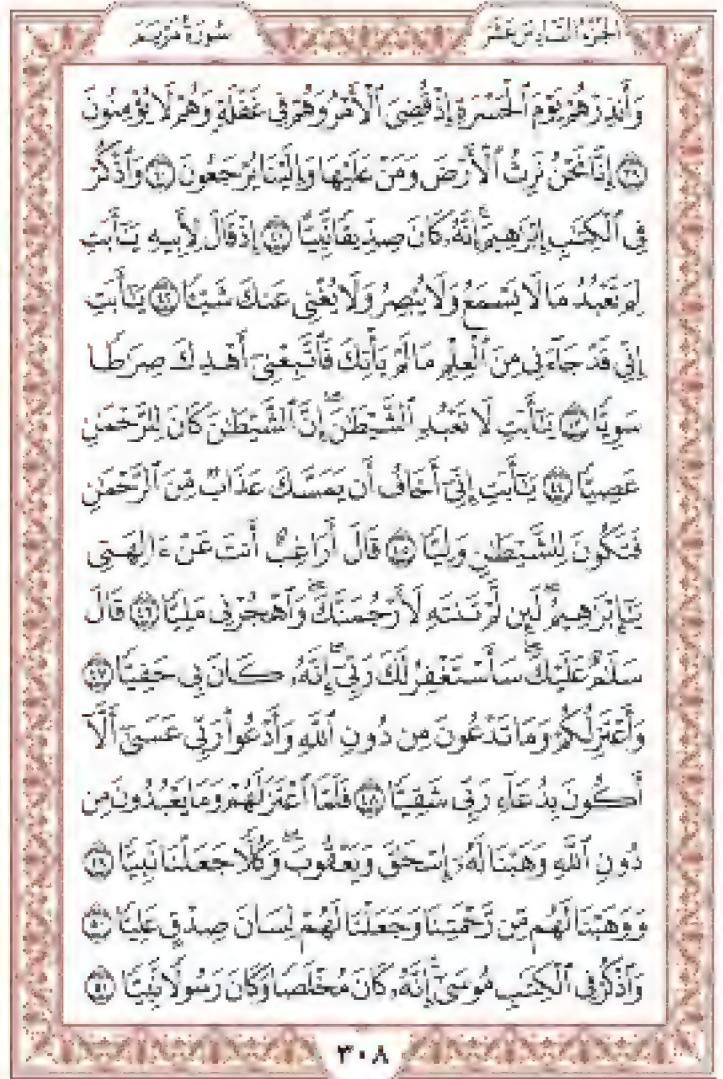 الجزء السادس عشر
سورة مريم
وَأَنذِرْهُمْ يَوْمَ ٱلْحَسْرَةِ إِذْ قُضِيَ ٱلْأَمْرُ وَهُمْ فِي غَفْلَةٍ وَهُمْ لَا يُؤْمِنُونَ
﴿٣٩﴾ إِنَّا نَحْنُ نَرِثُ ٱلْأَرْضَ وَمَنْ عَلَيْهَا وَإِلَيْنَا يُرْجَعُونَ ﴿٤٠﴾ وَٱذْكُرْ
فِي ٱلْكِتَٰبِ إِبْرَٰهِيمَ ۚ إِنَّهُۥ كَانَ صِدِّيقًا نَّبِيًّا ﴿٤١﴾ إِذْ قَالَ لِأَبِيهِ يَٰٓأَبَتِ
لِمَ تَعْبُدُ مَا لَا يَسْمَعُ وَلَا يُبْصِرُ وَلَا يُغْنِي عَنكَ شَيْـًٔا ﴿٤٢﴾ يَٰٓأَبَتِ
إِنِّي قَدْ جَآءَنِي مِنَ ٱلْعِلْمِ مَا لَمْ يَأْتِكَ فَٱتَّبِعْنِيٓ أَهْدِكَ صِرَٰطًا
سَوِيًّا ﴿٤٣﴾ يَٰٓأَبَتِ لَا تَعْبُدِ ٱلشَّيْطَٰنَ ۖ إِنَّ ٱلشَّيْطَٰنَ كَانَ لِلرَّحْمَٰنِ
عَصِيًّا ﴿٤٤﴾ يَٰٓأَبَتِ إِنِّيٓ أَخَافُ أَن يَمَسَّكَ عَذَابٌ مِّنَ ٱلرَّحْمَٰنِ
فَتَكُونَ لِلشَّيْطَٰنِ وَلِيًّا ﴿٤٥﴾ قَالَ أَرَاغِبٌ أَنتَ عَنْ ءَالِهَتِي
يَٰٓإِبْرَٰهِيمُ ۖ لَئِن لَّمْ تَنتَهِ لَأَرْجُمَنَّكَ ۖ وَٱهْجُرْنِي مَلِيًّا ﴿٤٦﴾ قَالَ
سَلَٰمٌ عَلَيْكَ ۖ سَأَسْتَغْفِرُ لَكَ رَبِّيٓ ۖ إِنَّهُۥ كَانَ بِي حَفِيًّا ﴿٤٧﴾
وَأَعْتَزِلُكُمْ وَمَا تَدْعُونَ مِن دُونِ ٱللَّهِ وَأَدْعُوا۟ رَبِّي عَسَىٰٓ أَلَّآ
أَكُونَ بِدُعَآءِ رَبِّي شَقِيًّا ﴿٤٨﴾ فَلَمَّا ٱعْتَزَلَهُمْ وَمَا يَعْبُدُونَ مِن
دُونِ ٱللَّهِ وَهَبْنَا لَهُۥٓ إِسْحَٰقَ وَيَعْقُوبَ ۖ وَكُلًّا جَعَلْنَا نَبِيًّا ﴿٤٩﴾
وَوَهَبْنَا لَهُم مِّن رَّحْمَتِنَا وَجَعَلْنَا لَهُمْ لِسَانَ صِدْقٍ عَلِيًّا ﴿٥٠﴾
وَٱذْكُرْ فِي ٱلْكِتَٰبِ مُوسَىٰٓ ۚ إِنَّهُۥ كَانَ مُخْلَصًا وَكَانَ رَسُولًا نَّبِيًّا ﴿٥١﴾
٣٠٨